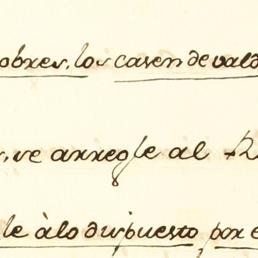 obres, los casen de vald
se arregle al R
le à lo dispuesto, por e